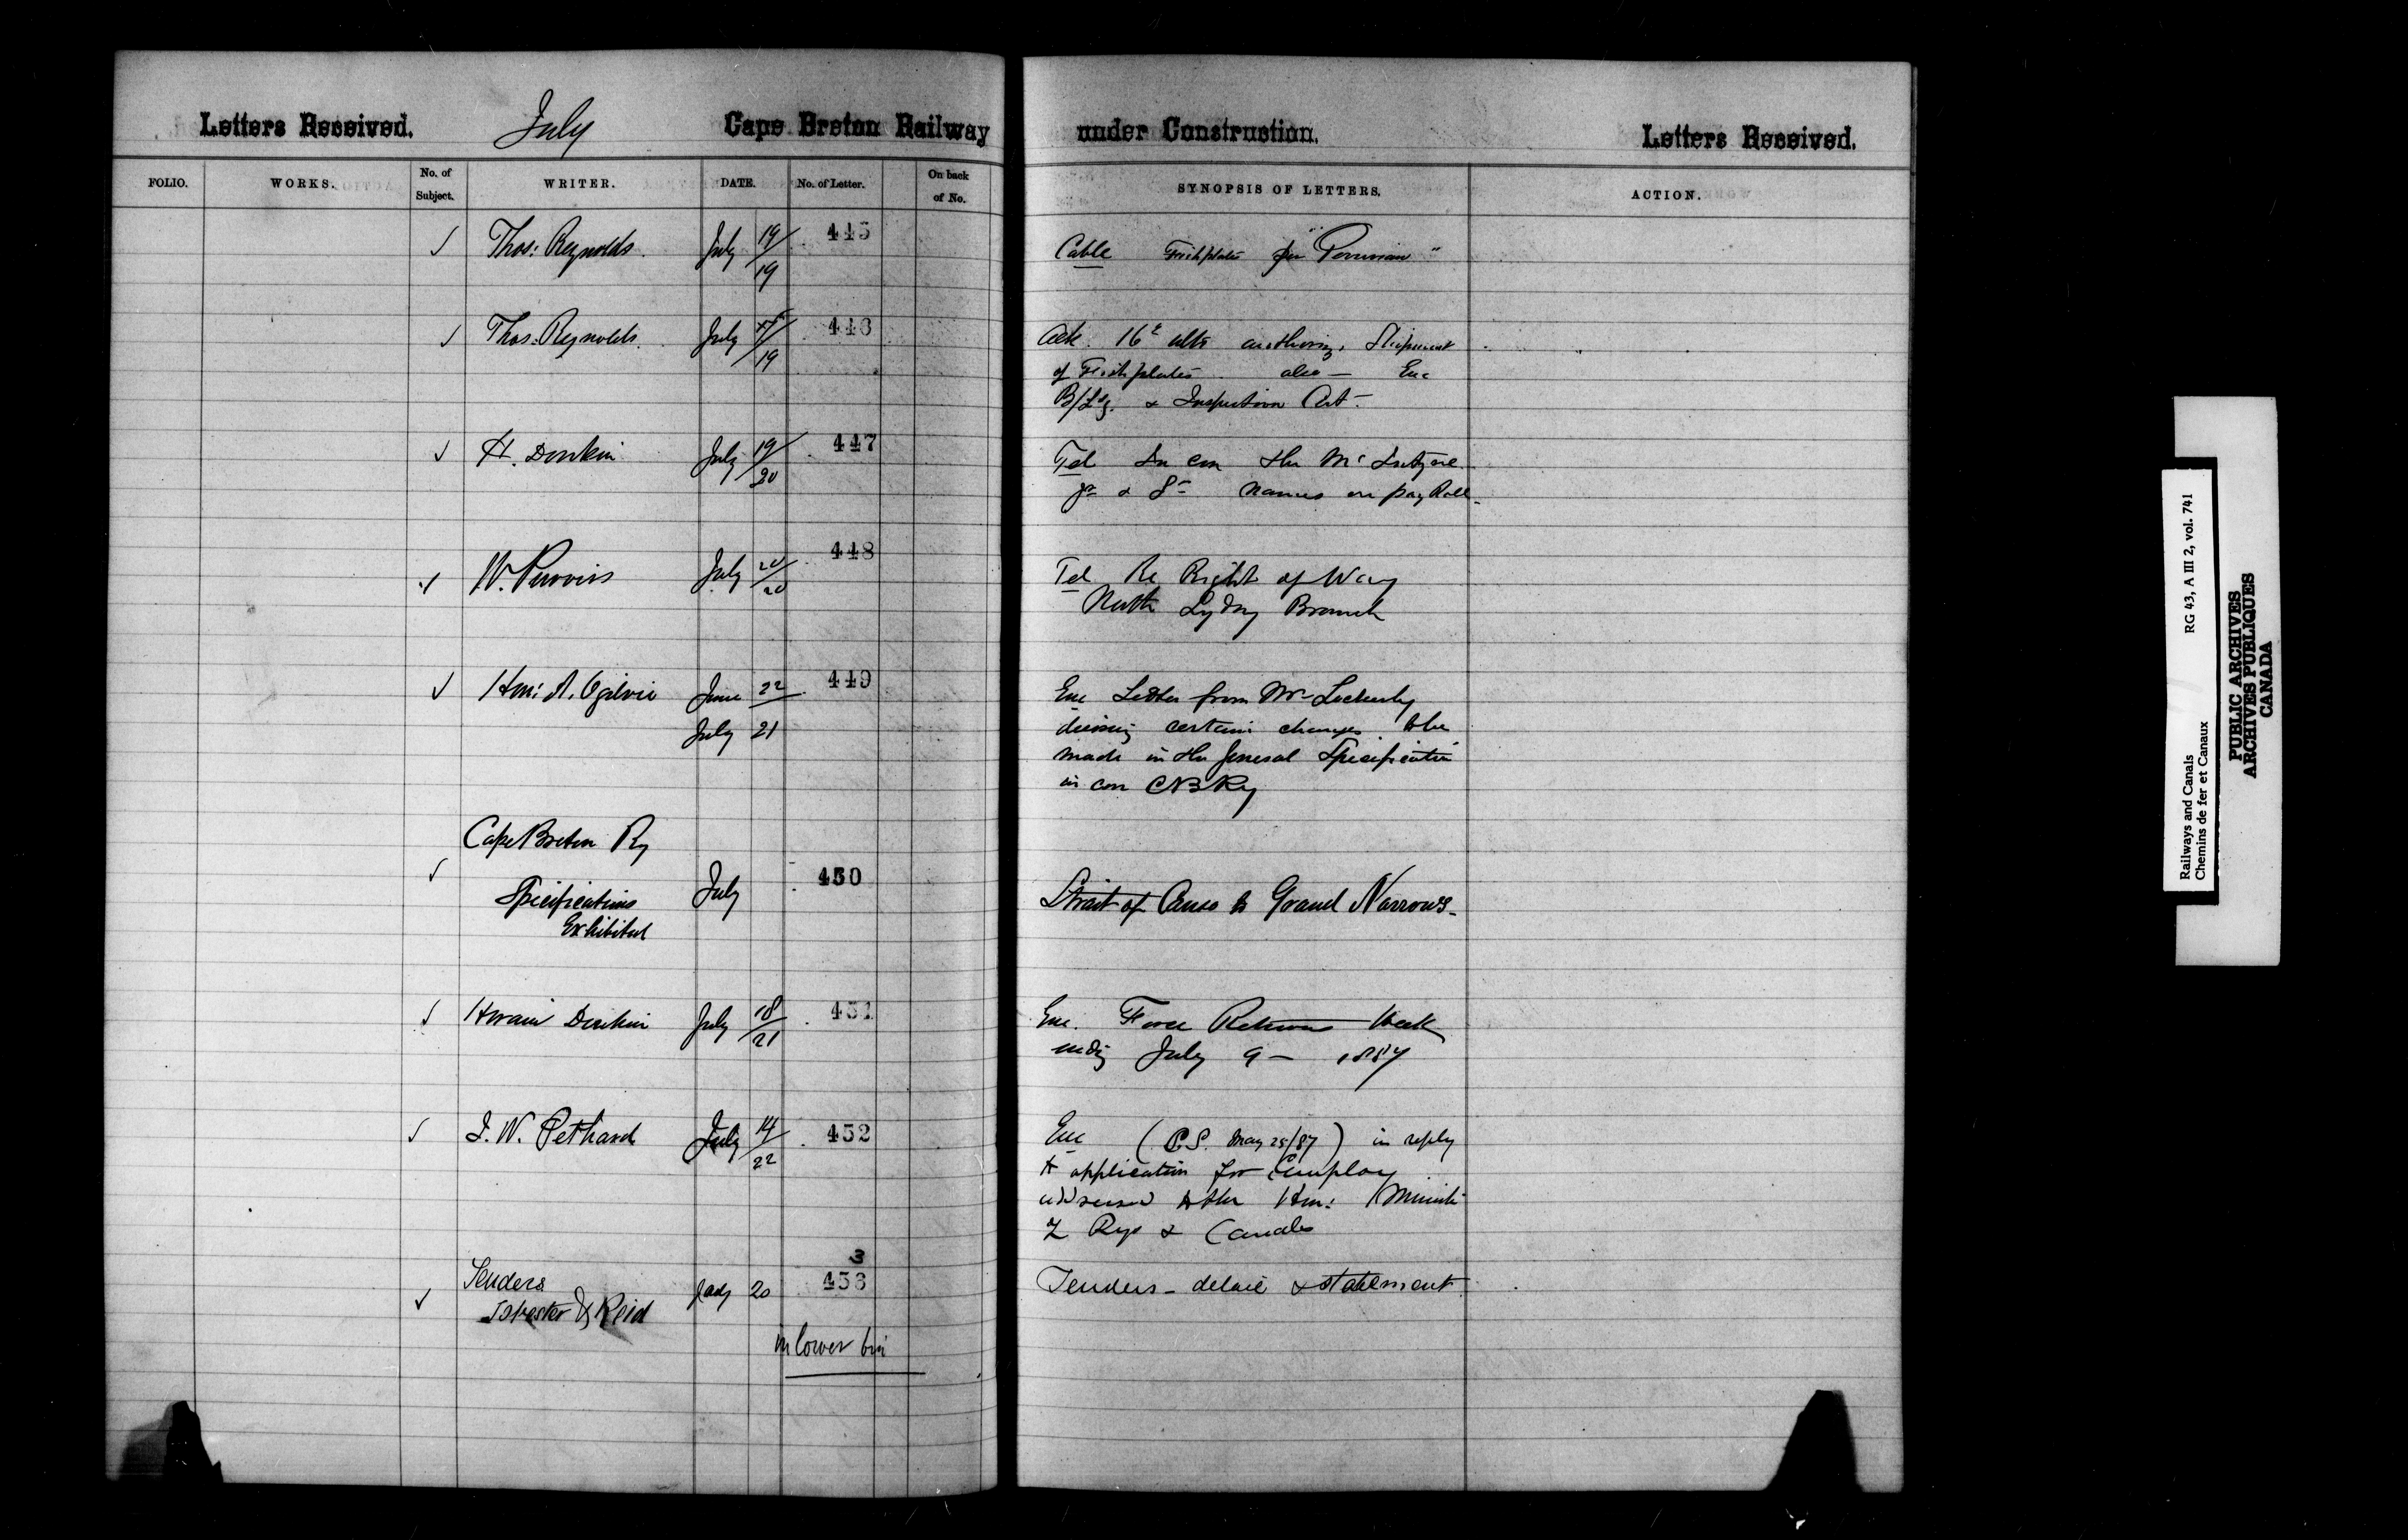 Letters Received. July Cape Breton Railway under Construction. Letters Received.
FOLIO. WORKS. No. of Subject. WRITER. DATE. No. of Letter. On back of No. SYNOPSIS OF LETTERS. ACTION.
✓ Thos: Reynolds. July 19/19 445 Cable Fishplates per "Peruvian"
✓ Thos: Reynolds. July /19 446 Ack. 16th ulto authorizg. Shipment
of Fishplates also — Enc
B/Ldg. & Inspection Cert.
✓ H. Donkin July 19/20 447 Tel In con the Mc Intyre
Jr & Sr names on pay Roll
✓ W. Purvis July 20/20 448 Tel Re Right of Way
North Sydny Branch
✓ Hon: A. Ogilvie June 22 449 Enc Letter from Mr Lockerby
July 21 desiring certain changes to be
made in the General Specification
in con CB Ry
Cape Breton Ry
✓ Specifications July 450 Strait of Canso to Grand Narrows
Exhibited
✓ Hiram Donkin July 18/21 451 Enc. Force Returns Week
endg July 9 — 1887
✓ J. W. Pethard July 14/22 452 Enc (P.S. May 25/87) in reply
to application for Employ
addressed to the Hon: Minister
of Rys & Canals
3
Tenders
✓ Isbester & Reid July 20 453 Tenders - detail & statement
in lower bin
Railways and Canals RG 43, A III 2, vol. 741
Chemins de fer et Canaux
PUBLIC ARCHIVES
ARCHIVES PUBLIQUES
CANADA